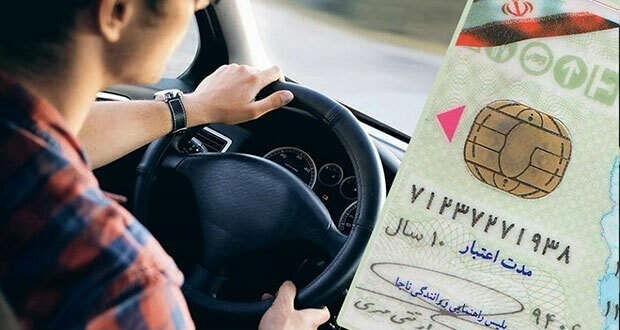 ۷۱۲۳۷۲۷۱۹۳۸
مدت اعتبار ۱۰ سال
پلیس راهنمایی و رانندگی ناجا
۹۴